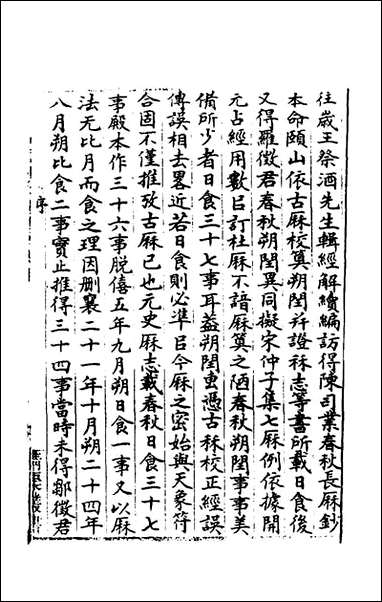 往歲王祭酒先生輯經解續編訪得陳司業春秋長厤鈔
本命頤山依古厤校算朔閏并證秝志等書所載日食後
又得羅徵君春秋朔閏異同擬宋仲子集七厤例依據開
元占經用數㠯訂杜厤不諳厤算之陋春秋朔閏事事美
備所少者日食三十七事耳葢朔閏雖憑古秝校正經誤
傳誤相去畧近若日食則必準㠯今厤之密始與天象符
合固不僅推攷古厤已也元史厤志載春秋日食三十七
事殿本作三十六事脱僖五年九月朔日食一事又以厤
法无比月而食之理因删襄二十一年十月朔二十四年
八月朔比食二事實止推得三十四事當時未得鄒徵君
序